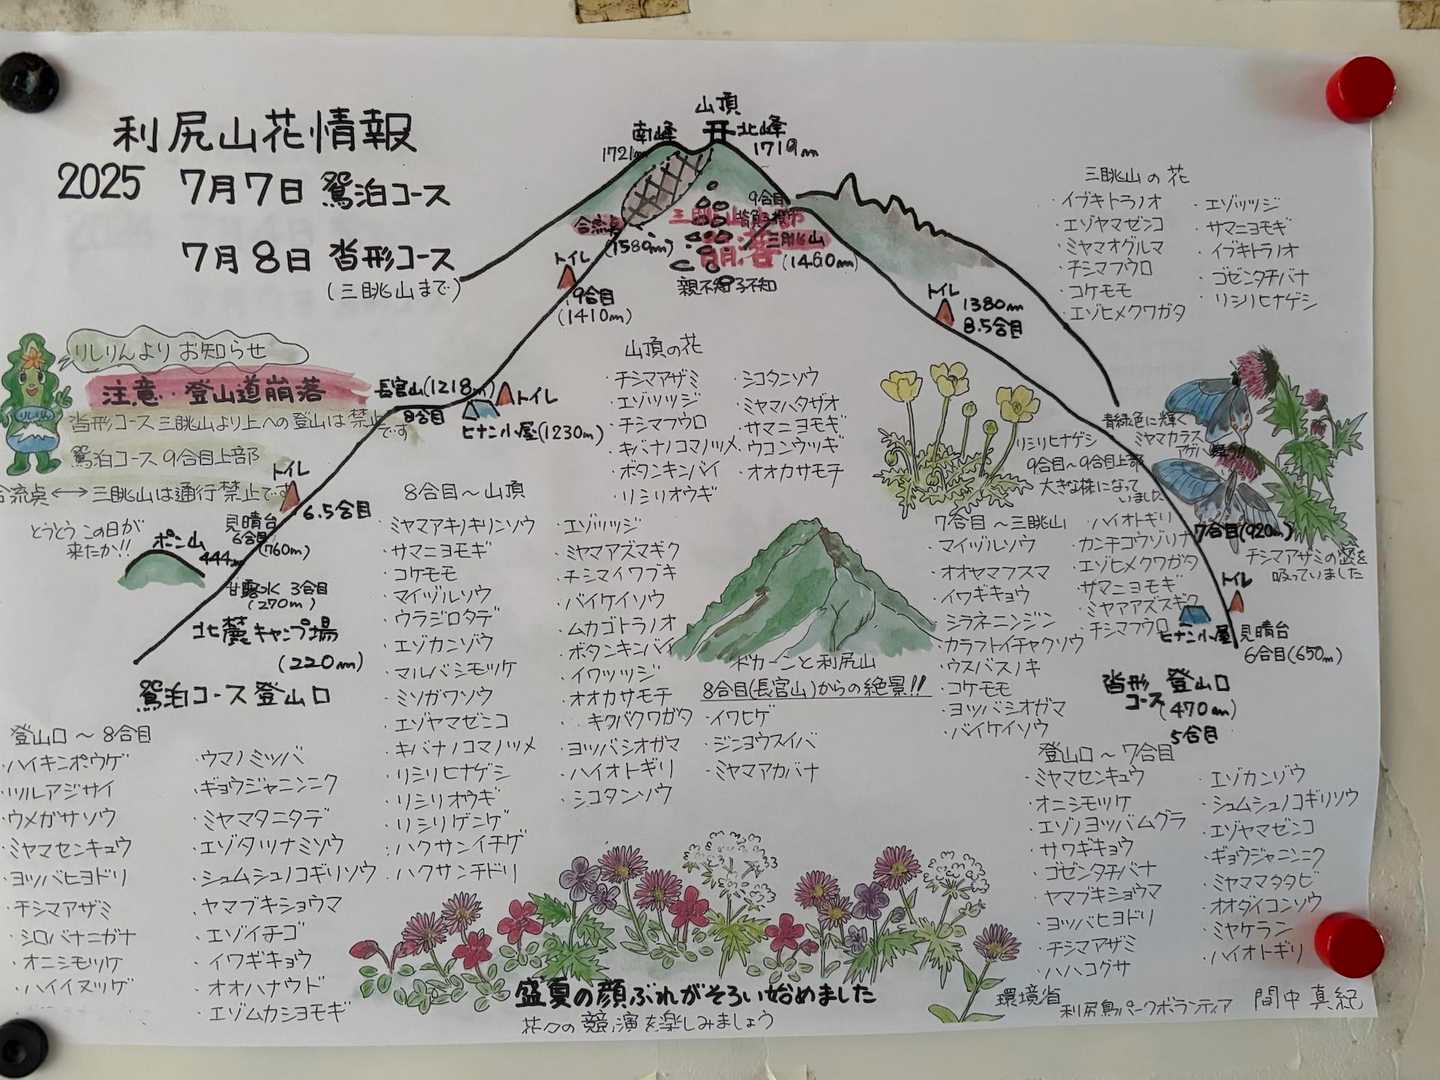 利尻山花情報
2025 7月7日 鴛泊コース
7月8日 沓形コース
(三眺山まで)
山頂
南峰
1721m
北峰
1719m
9合目
三眺山
(1460m)
崩落
親不知子不知
合流点
(1580m)
トイレ
9合目
(1410m)
トイレ
1380m
8.5合目
長官山(1218m)
8合目
トイレ
ヒナン小屋(1230m)
トイレ
6.5合目
見晴台
6合目
(760m)
ポン山
444m
甘露水 3合目
(270m)
北麓キャンプ場
(220m)
鴛泊コース登山口
りしりんより お知らせ
注意‥登山道崩落
沓形コース 三眺山より上への登山は禁止です
鴛泊コース 9合目上部
合流点⟷三眺山は通行禁止です
とうとう この日が
来たか!!
三眺山の花
・イブキトラノオ
・エゾヤマゼンコ
・ミヤマオグルマ
・チシマフウロ
・コケモモ
・エゾヒメクワガタ
・エゾツツジ
・サマニヨモギ
・イブキトラノオ
・ゴゼンタチバナ
・リシリヒナゲシ
山頂の花
・チシマアザミ
・エゾツツジ
・チシマフウロ
・キバナノコマノツメ
・ボタンキンバイ
・リシリオウギ
・シコタンソウ
・ミヤマハタザオ
・サマニヨモギ
・ウコンウツギ
・オオカサモチ
リシリヒナゲシ
9合目〜9合目上部
大きな株になって
いました
青緑色に輝く
ミヤマカラス
アゲハ
チシマアザミの蜜を
吸っていました
7合目(920m)
トイレ
ヒナン小屋
見晴台
6合目(650m)
沓形コース 登山口
(470m)
5合目
8合目〜山頂
・ミヤマアキノキリンソウ
・サマニヨモギ
・コケモモ
・マイヅルソウ
・ウラジロタデ
・エゾカンゾウ
・マルバシモツケ
・ミソガワソウ
・エゾヤマゼンコ
・キバナノコマノツメ
・リシリヒナゲシ
・リシリオウギ
・リシリゲンゲ
・ハクサンイチゲ
・ハクサンチドリ
・エゾツツジ
・ミヤマアズマギク
・チシマイワブキ
・バイケイソウ
・ムカゴトラノオ
・ボタンキンバイ
・イワツツジ
・オオカサモチ
・キクバクワガタ
・ヨツバシオガマ
・ハイオトギリ
・シコタンソウ
・イワヒゲ
・ジンヨウスイバ
・ミヤマアカバナ
ドカーンと利尻山
8合目(長官山)からの絶景!!
7合目〜三眺山
・マイヅルソウ
・オオヤマフスマ
・イワギキョウ
・シラネニンジン
・カラフトイチヤクソウ
・ウスバスノキ
・コケモモ
・ヨツバシオガマ
・バイケイソウ
・ハイオトギリ
・カンチコウゾリナ
・エゾヒメクワガタ
・サマニヨモギ
・ミヤマアズマギク
・チシマフウロ
登山口〜8合目
・ハイキンポウゲ
・ツルアジサイ
・ウメガサソウ
・ミヤマセンキュウ
・ヨツバヒヨドリ
・チシマアザミ
・シロバナニガナ
・オニシモツケ
・ハイイヌツゲ
・ウマノミツバ
・ギョウジャニンニク
・ミヤマタニタデ
・エゾタツナミソウ
・シュムシュノコギリソウ
・ヤマブキショウマ
・エゾイチゴ
・イワギキョウ
・オオハナウド
・エゾムカシヨモギ
登山口〜7合目
・ミヤマセンキュウ
・オニシモツケ
・エゾノヨツバムグラ
・サワギキョウ
・ゴゼンタチバナ
・ヤマブキショウマ
・ヨツバヒヨドリ
・チシマアザミ
・ハハコグサ
・エゾカンゾウ
・シュムシュノコギリソウ
・エゾヤマゼンコ
・ギョウジャニンニク
・ミヤママタタビ
・オオダイコンソウ
・ミヤケラン
・ハイオトギリ
盛夏の顔ぶれがそろい始めました
花々の競演を楽しみましょう
環境省
利尻島パークボランティア 間中真紀